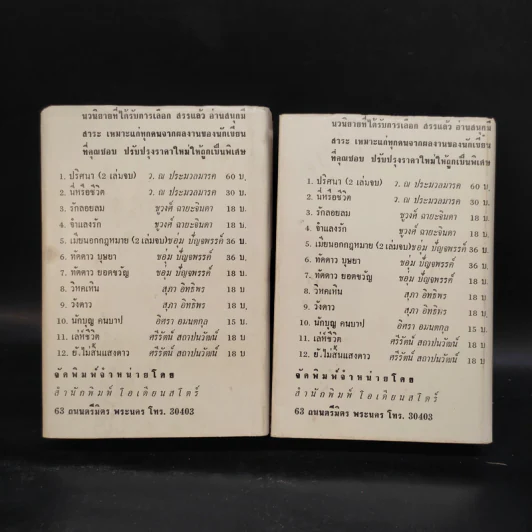 นวนิยายที่ได้รับการเลือก สรรแล้ว อ่านสนุกมี
สาระ เหมาะแก่ทุกคนจากผลงานของนักเขียน
ที่คุณชอบ ปรับปรุงราคาใหม่ให้ถูกเป็นพิเศษ
1. ปริศนา (2 เล่มจบ) ว. ณ ประมวลมารค 60 บ.
2. นี่หรือชีวิต ว. ณ ประมวลมารค 30 บ.
3. รักลอยลม ชูวงศ์ ฉายะจินดา 18 บ.
4. จำแลงรัก ชูวงศ์ ฉายะจินดา 18 บ.
5. เมียนอกกฎหมาย (2 เล่มจบ) ชอุ่ม ปัญจพรรค์ 36 บ.
6. ทัดดาว บุษยา ชอุ่ม ปัญจพรรค์ 36 บ.
7. ทัดดาว ยอดขวัญ ชอุ่ม ปัญจพรรค์ 18 บ.
8. วิหคเหิน สุภา อิทธิพร 18 บ.
9. วังดาว สุภา อิทธิพร 18 บ.
10. นักบุญ คนบาป อิศรา อมนตกุล 15 บ.
11. เล่ห์ชีวิต ศรีรัตน์ สถาปนวัฒน์ 18 บ
12. ย้ำไม่สิ้นแสงดาว ศรีรัตน์ สถาปนวัฒน์ 18 บ
จัดพิมพ์จำหน่ายโดย
สำนักพิมพ์ โอเดียนสโตร์
63 ถนนตรีมิตร พระนคร โทร. 30403
นวนิยายที่ได้รับการเลือก สรรแล้ว อ่านสนุกมี
สาระ เหมาะแก่ทุกคนจากผลงานของนักเขียน
ที่คุณชอบ ปรับปรุงราคาใหม่ให้ถูกเป็นพิเศษ
1. ปริศนา (2 เล่มจบ) ว. ณ ประมวลมารค 60 บ.
2. นี่หรือชีวิต ว. ณ ประมวลมารค 30 บ.
3. รักลอยลม ชูวงศ์ ฉายะจินดา 18 บ.
4. จำแลงรัก ชูวงศ์ ฉายะจินดา 18 บ.
5. เมียนอกกฎหมาย (2 เล่มจบ) ชอุ่ม ปัญจพรรค์ 36 บ.
6. ทัดดาว บุษยา ชอุ่ม ปัญจพรรค์ 36 บ.
7. ทัดดาว ยอดขวัญ ชอุ่ม ปัญจพรรค์ 18 บ.
8. วิหคเหิน สุภา อิทธิพร 18 บ.
9. วังดาว สุภา อิทธิพร 18 บ.
10. นักบุญ คนบาป อิศรา อมนตกุล 15 บ.
11. เล่ห์ชีวิต ศรีรัตน์ สถาปนวัฒน์ 18 บ
12. ย้ำไม่สิ้นแสงดาว ศรีรัตน์ สถาปนวัฒน์ 18 บ
จัดพิมพ์จำหน่ายโดย
สำนักพิมพ์ โอเดียนสโตร์
63 ถนนตรีมิตร พระนคร โทร. 30403